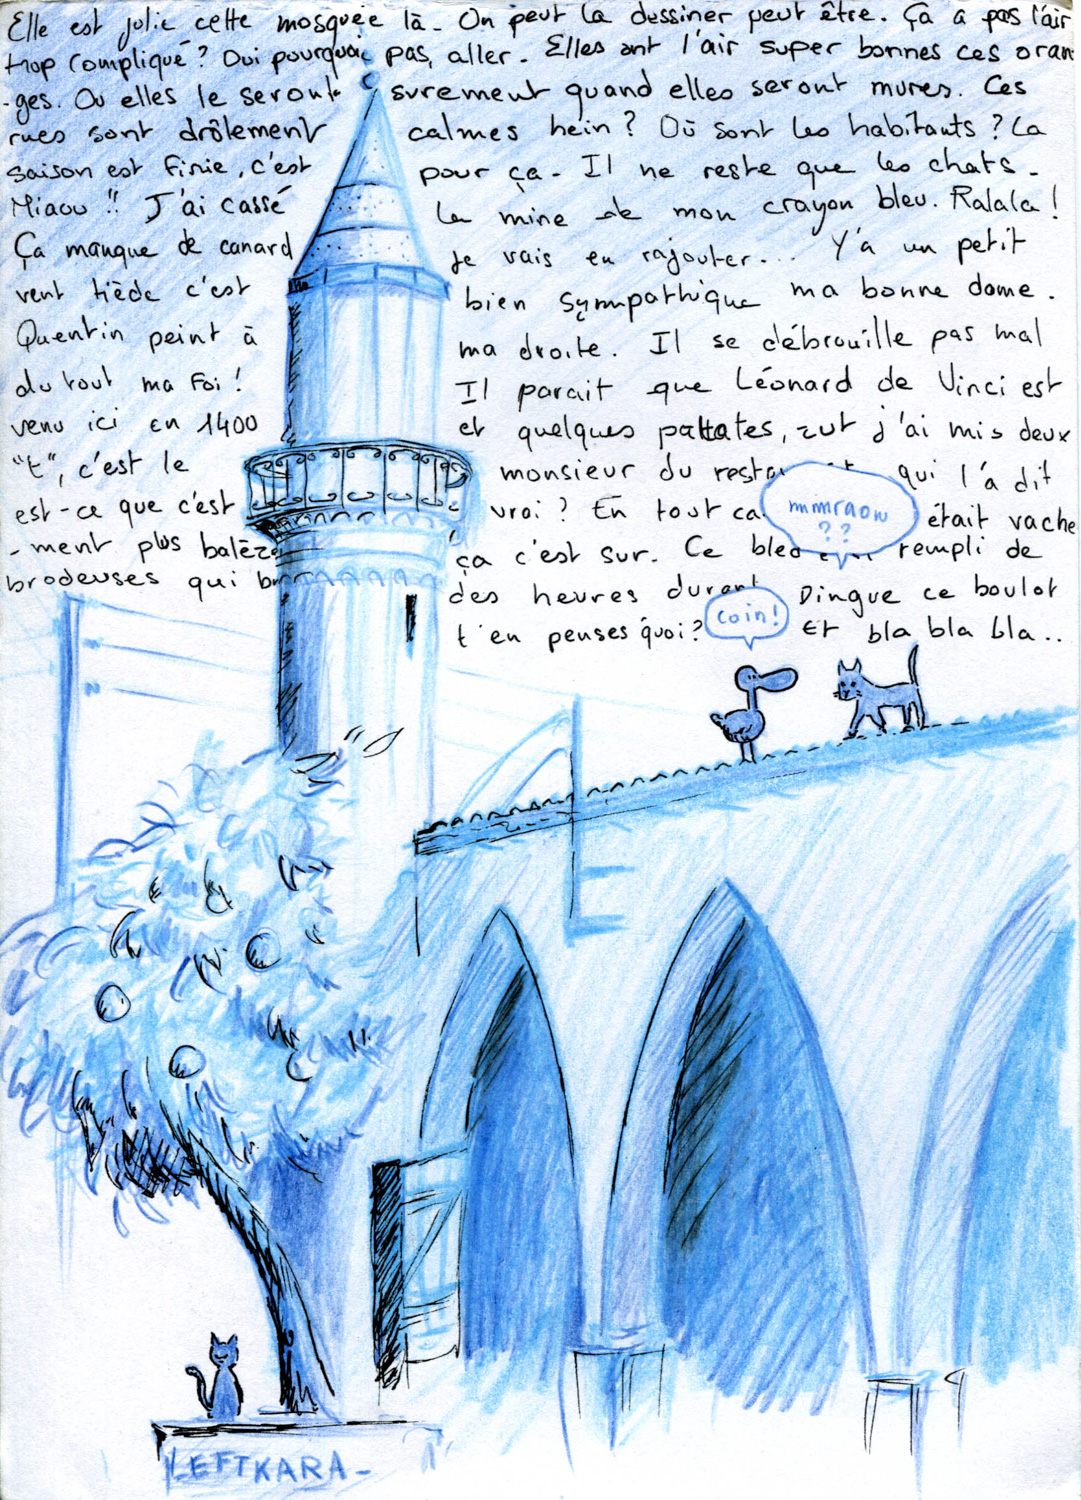 Elle est jolie cette mosquée là. On peut la dessiner peut être. Ça a pas l'air
trop compliqué ? Oui pourquoi pas, aller. Elles ont l'air super bonnes ces oran
-ges. Ou elles le seront surement quand elles seront mures. Ces
rues sont drôlement calmes hein ? Où sont les habitants ? La
saison est finie, c'est pour ça. Il ne reste que les chats.
Miaou !! J'ai cassé la mine de mon crayon bleu. Ralala !
Ça manque de canard je vais en rajouter... Y'a un petit
vent tiède c'est bien sympathique ma bonne dame.
Quentin peint à ma droite. Il se débrouille pas mal
du tout ma foi ! Il parait que Léonard de Vinci est
venu ici en 1400 et quelques pattates, zut j'ai mis deux
"t", c'est le monsieur du qui l'a dit
est-ce que c'est vrai ? En tout était vache
-ment plus balèze ça c'est sur. Ce rempli de
brodeuses qui des heures durant Dingue ce boulot
t'en penses quoi ? Et bla bla bla..
mmraow
??
coin !
LEFTKARA-